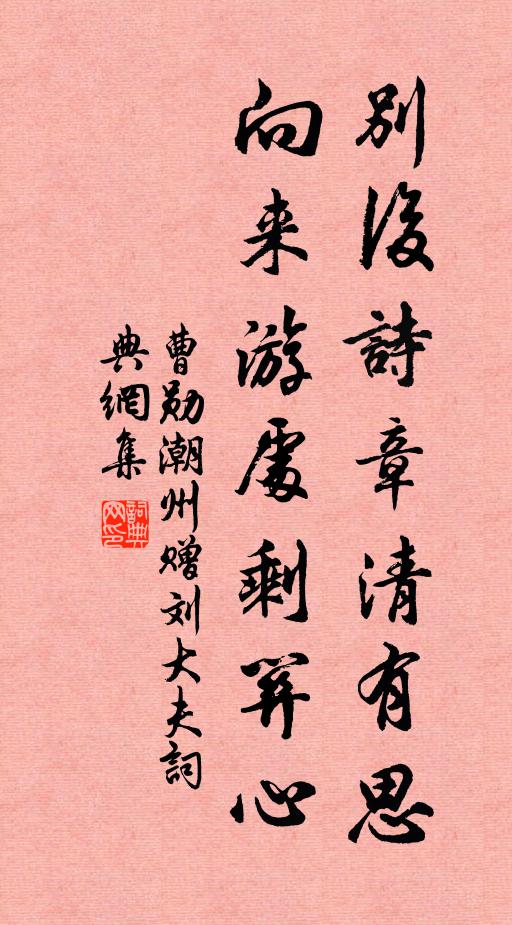 別後詩章清有思
向来游處剩關心
曹勛潮州赠刘大夫詞
典網集
詞典
网印